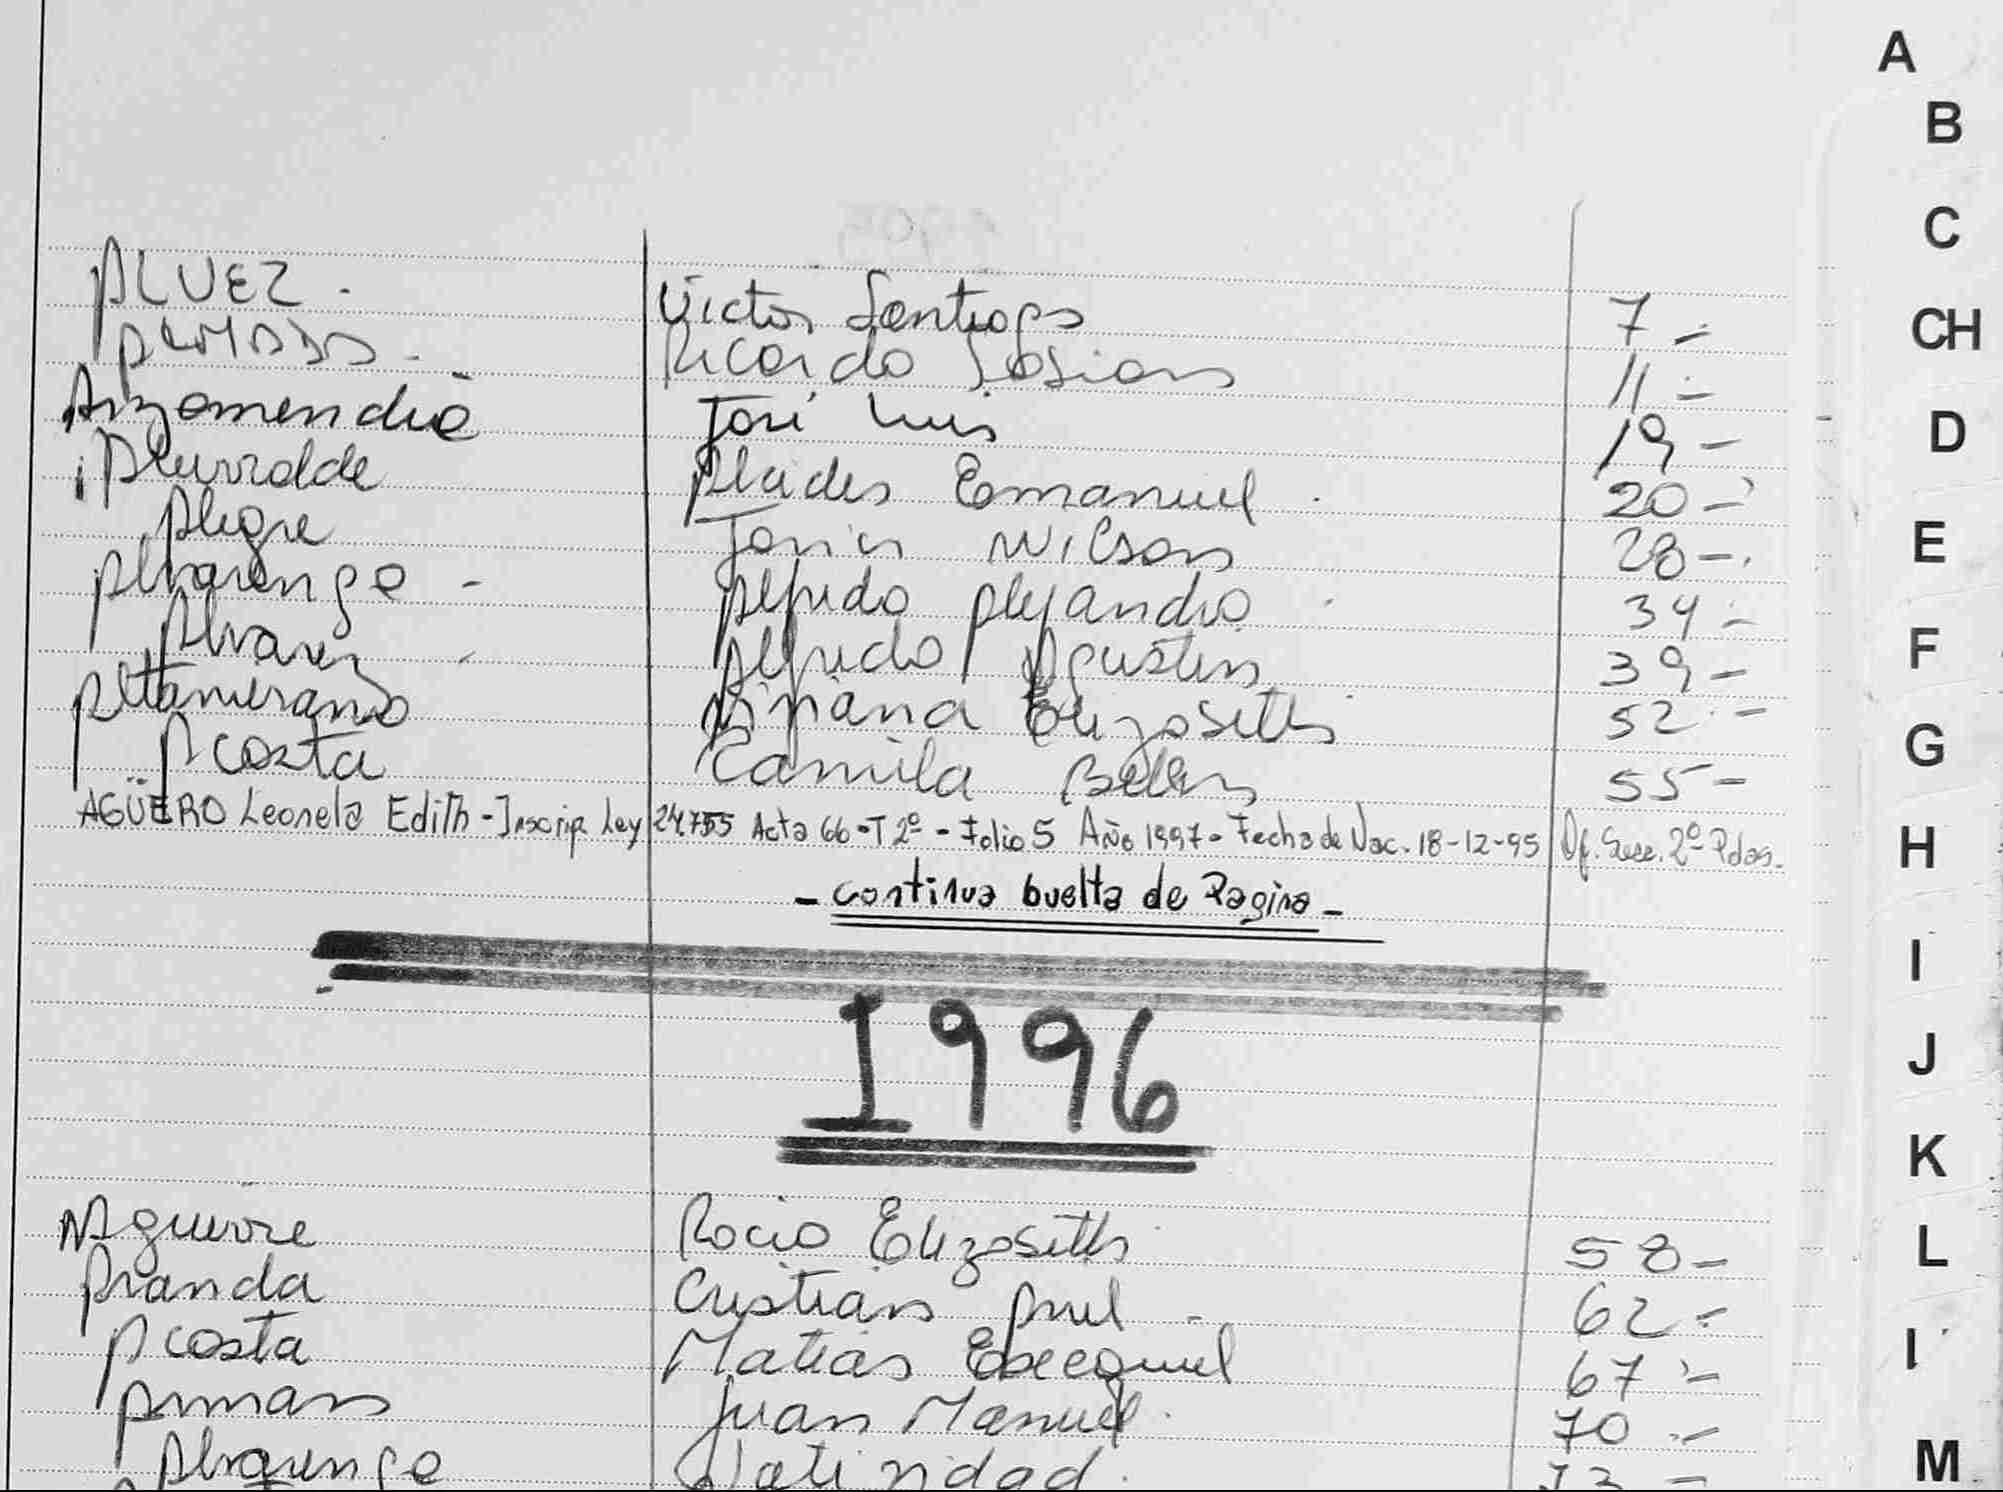 A
B
C
ALVEZ. Victor Santiago 7-
CH
Ricardo Fabian 11-
Arzamendia José Luis 19-
D
Alcides Emanuel. 20-
Alegre Javier Wilson 28-.
E
Alvarenga - Alfredo Alejandro. 34-
Alvarez - Alfredo Agustin 39-
F
Altamirano Bibiana Elizabeth 52-
G
Acosta Camila Belen 55-
AGÜERO Leonela Edith - Inscrip Ley 24.755 Acta 66-T 2º - Folio 5 Año 1997 - Fecha de Nac. 18-12-95 Of. Secc. 2º Pdas.
H
- Continua buelta de Pagina -
I
1996
J
K
Aguirre Rocio Elizabeth 58-
L
Aranda Cristian Ariel - 62-
Acosta Matias Exequiel 67-
I
Juan Manuel. 70-
Alvarenga Natividad. 73-
M